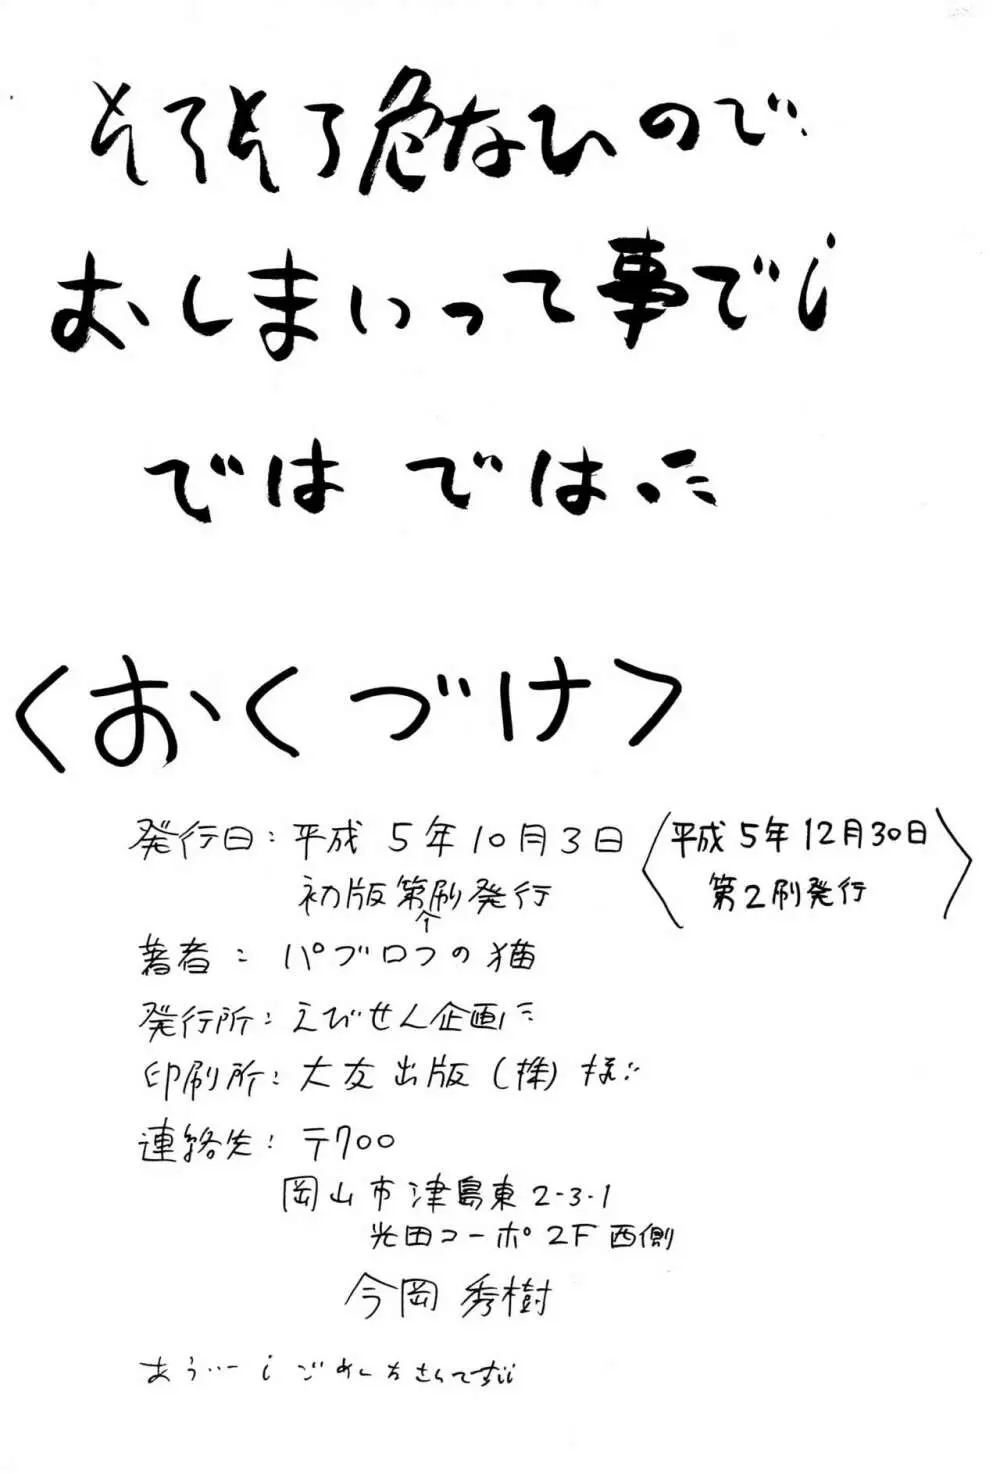 そろそろ危なひので
おしまいって事で!
では では…
<おくづけ>
発行日:平成 5年10月3日
初版第刷発行
<平成5年12月30日
第2刷発行>
著者:パブロフの猫
発行所:えびせん企画
印刷所:大友出版(株)様
連絡先:〒700
岡山市津島東2-3-1
光田コーポ2F西側
今岡 秀樹